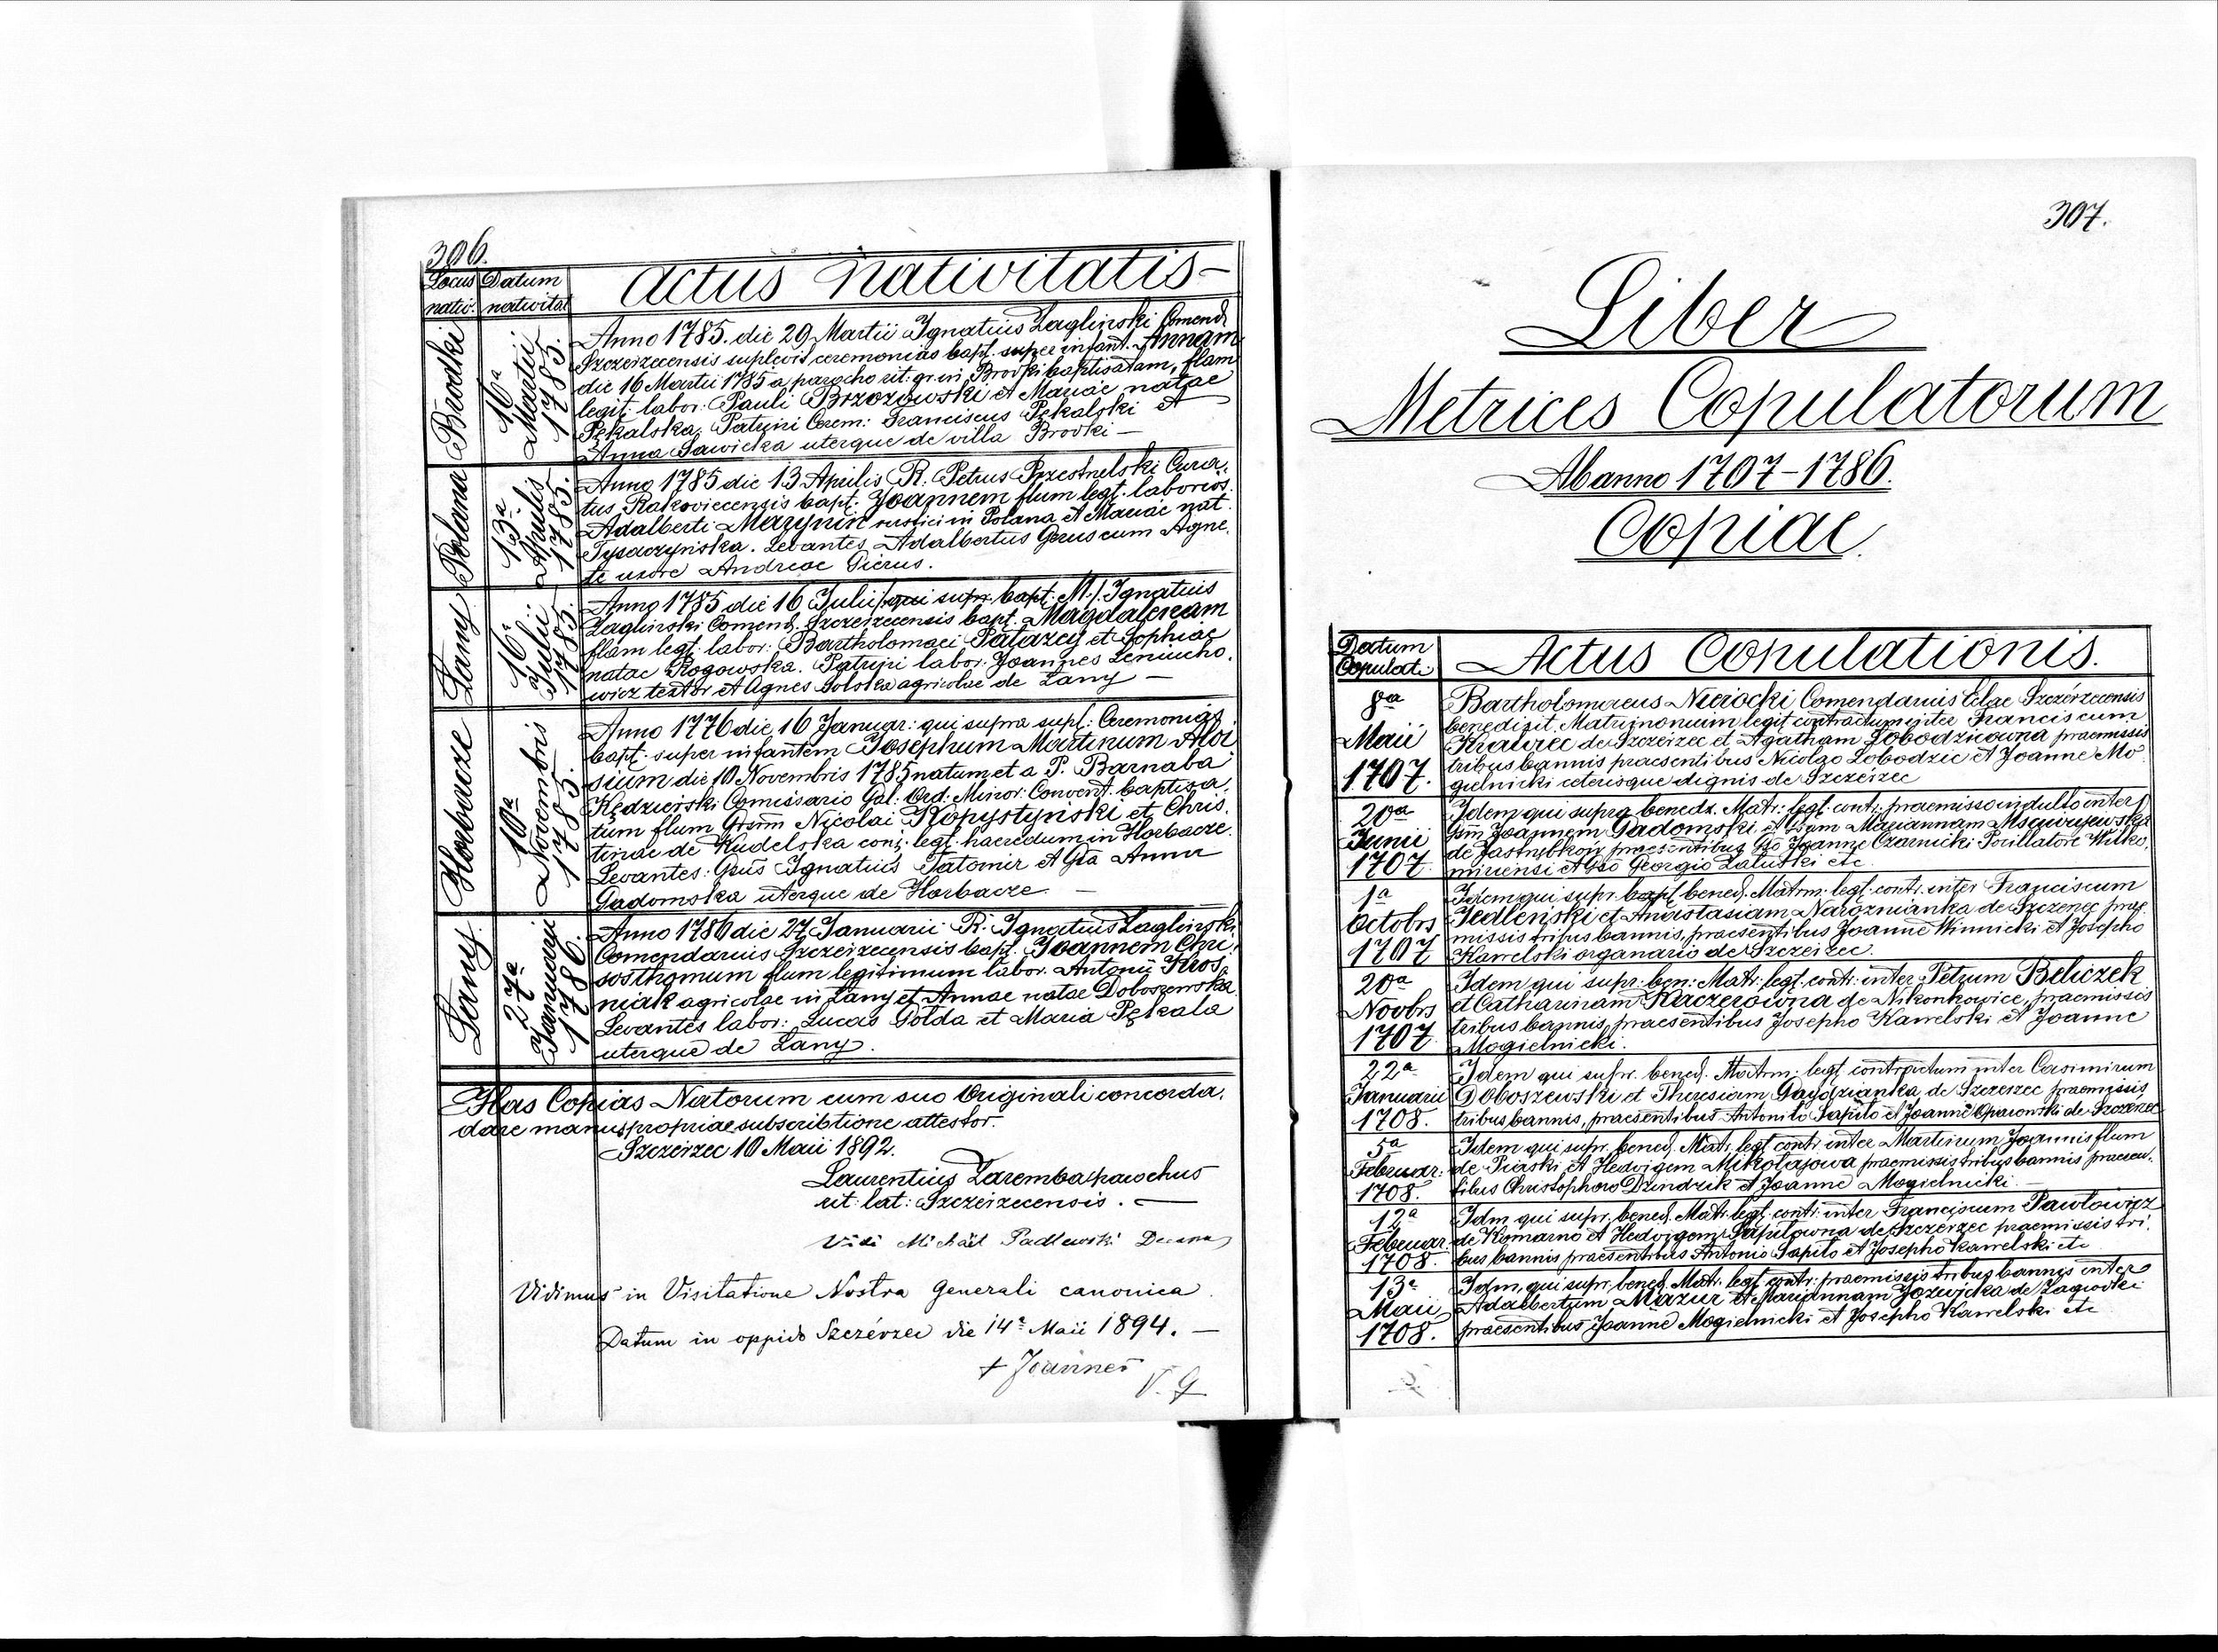 306.
Locus Datum
nativ. nativitat
Actus Nativitatis—
Brodki
16a
Martii
1785.
Anno 1785. die 29 Martii Ignatius Zaglinski Comend.
Szczerzecensis suplevit ceremonias bapt. super infant. Annam
die 16 Martii 1785 a parocho rit: gr: in Brodki baptisatam, flam
legit: labor: Pauli Brzozowski et Mariae natae
Pękalska. Patrini Cerem: Franciscus Pękalski et
Anna Sawicka uterque de villa Brodki —
Polana
13a
Aprilis
1785.
Anno 1785 die 13 Aprilis R. Petrus Przestrzelski Cura,
tus Rakoviecensis bapt: Joannem flum legt. laborios.
Adalberti Mazynin rustici in Polana et Mariae nat.
Tysaczyńska. Levantes Adalbertus Gerus cum Agne,
te uxore Andreae Gierus.
Łany
16a
Julii
1785.
Anno 1785 die 16 Julii /qui supr. bapt: M./ Ignatius
Zaglinski Comend. Szczerzecensis bapt. Magdalenam
flam legt. labor: Bartholomaei Patazcy et Sophiae
natae Rogowska. Patrini labor: Joannes Leniucho,
wicz textor et Agnes Golska agricolae de Łany —
Horbacze
10a
Novembris
1785.
Anno 1776 die 16 Januar: qui supra supl: Ceremonias
bapt: super infantem Josephum Martinum Aloi
sium die 10 Novembris 1785 natum et a P. Barnaba
Kędzierski Comissario Gal: Ord: Minor: Convent. baptisa,
tum flum Grsm Nicolai Kopystyński et Chris,
tinae de Kudelska conj: legt. haeredum in Horbacze.
Levantes: Gsus Ignatius Tatomir et Gta Anna
Gadomska uterque de Horbacze —
Łany
27a
Januarii
1786.
Anno 1786 die 27 Januarii R. Ignatius Zaglinski
Comendarius Szczerzecensis bapt. Joannem Chri,
sosthomum flum legitimum labor. Antonii Kros,
niak agricolae in Łany et Annae natae Doboszewska.
Levantes labor: Lucas Gołda et Maria Pękala
uterque de Łany.
Has Copias Natorum cum suo Originali concorda,
dare manus propriae subscribtione attestor.
Szczerzec 10 Maii 1892.
Laurentius Zaremba parochus
rit: lat: Szczerzecensis. —
Vidi Michael Padlewski Decanus
Vidimus in Visitatione Nostra Generali canonica
Datum in oppido Szczérzec die 14a Maii 1894. —
+ Joannes
V. G
307.
Liber
Metrices Copulatorum
Ab anno 1707-1786.
Copiae.
Datum
Copulati:
Actus Copulationis.
8a
Maii
1707.
Bartholomaeus Nierocki Comendarius Eclae Szczérzecensis
benedixit Matrimonium legit contractum inter Franciscum
Krawiec de Szczerzec et Agatham Łobodzicowna praemissis
tribus bannis praesentibus Nicolao Lobodzic et Joanne Mo
gielnicki ceterisque dignis de Szczerzec
20a
Junii
1707.
Idem qui supra benedx. Matr: legt: contr: praemisso indulto inter
Gsm Joannem Gadomski et Gsam Mariannam Msciwujewska
de Jastrębkow praesentibus Gso Joanne Czarnicki Porillatore Wilko,
miriensi et Gso Georgio Załuski etc
1a
Octobrs
1707
Idem qui supr. bapt bened. Matrm: legt. contr. inter Franciscum
Jedleński et Anastasiam Narożnianka de Szczerzec prae,
missis tribus bannis, praesentibus Joanne Winnicki et Josepho
Kawelski organario de Szczerzec.
20a
Novbrs
1707
Idem qui supr: ben: Matr: legt. contr: inter Petrum Beliczek
et Catharinam Kaczerowna de Nikonkowice, praemissis
tribus bannis, praesentibus Josepho Kawelski et Joanne
Mogielnicki.
22a
Januarii
1708.
Idem qui supr. bened. Matrm: legt contractum inter Casimirum
Doboszewski et Theresiam Gaydzianka de Szczerzec praemissis,
tribus bannis, praesentibus Antonio Sapito et Joanne Oparowski de Szczerzec
5a
Februar.
1708.
Idem qui supr. bened. Matr. legt contr. inter Martinum Joannis flum
de Piaski et Hedvigem Mikołajowa praemissis tribus bannis praesen,
tibus Christophoro Dzindzik et Joanne Mogielnicki —
12a
Februar.
1708.
Idm qui supr. bened. Matr. legt. contr: inter Franciscum Pawłowicz
de Komarno et Hedvigem Sapitowna de Szczerzec praemissis tri,
bus bannis praesentibus Antonio Sapito et Josepho Kawelski etc
13a
Maii
1708.
Idm, qui supr. bened. Matr. legt contr: praemissis tribus bannis inter
Adalbertum Mazur et Mariannam Jozwicka de Zagrodki
praesentibus Joanne Mogielnicki et Josepho Kawelski etc